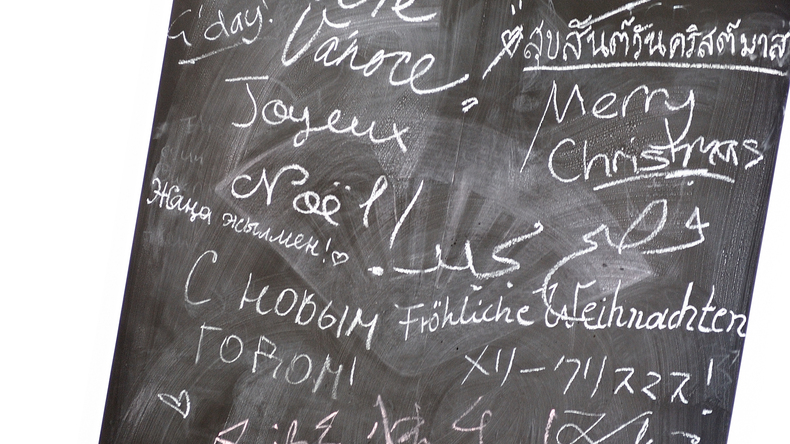 G'day!
Vánoce
สุขสันต์วันคริสต์มาส
Joyeux
Noël!
Merry
Christmas
Жаңа жылмен!
فصح مجيد
С НОВЫМ
ГОДОМ!
Fröhliche Weihnachten
メリークリスマス!